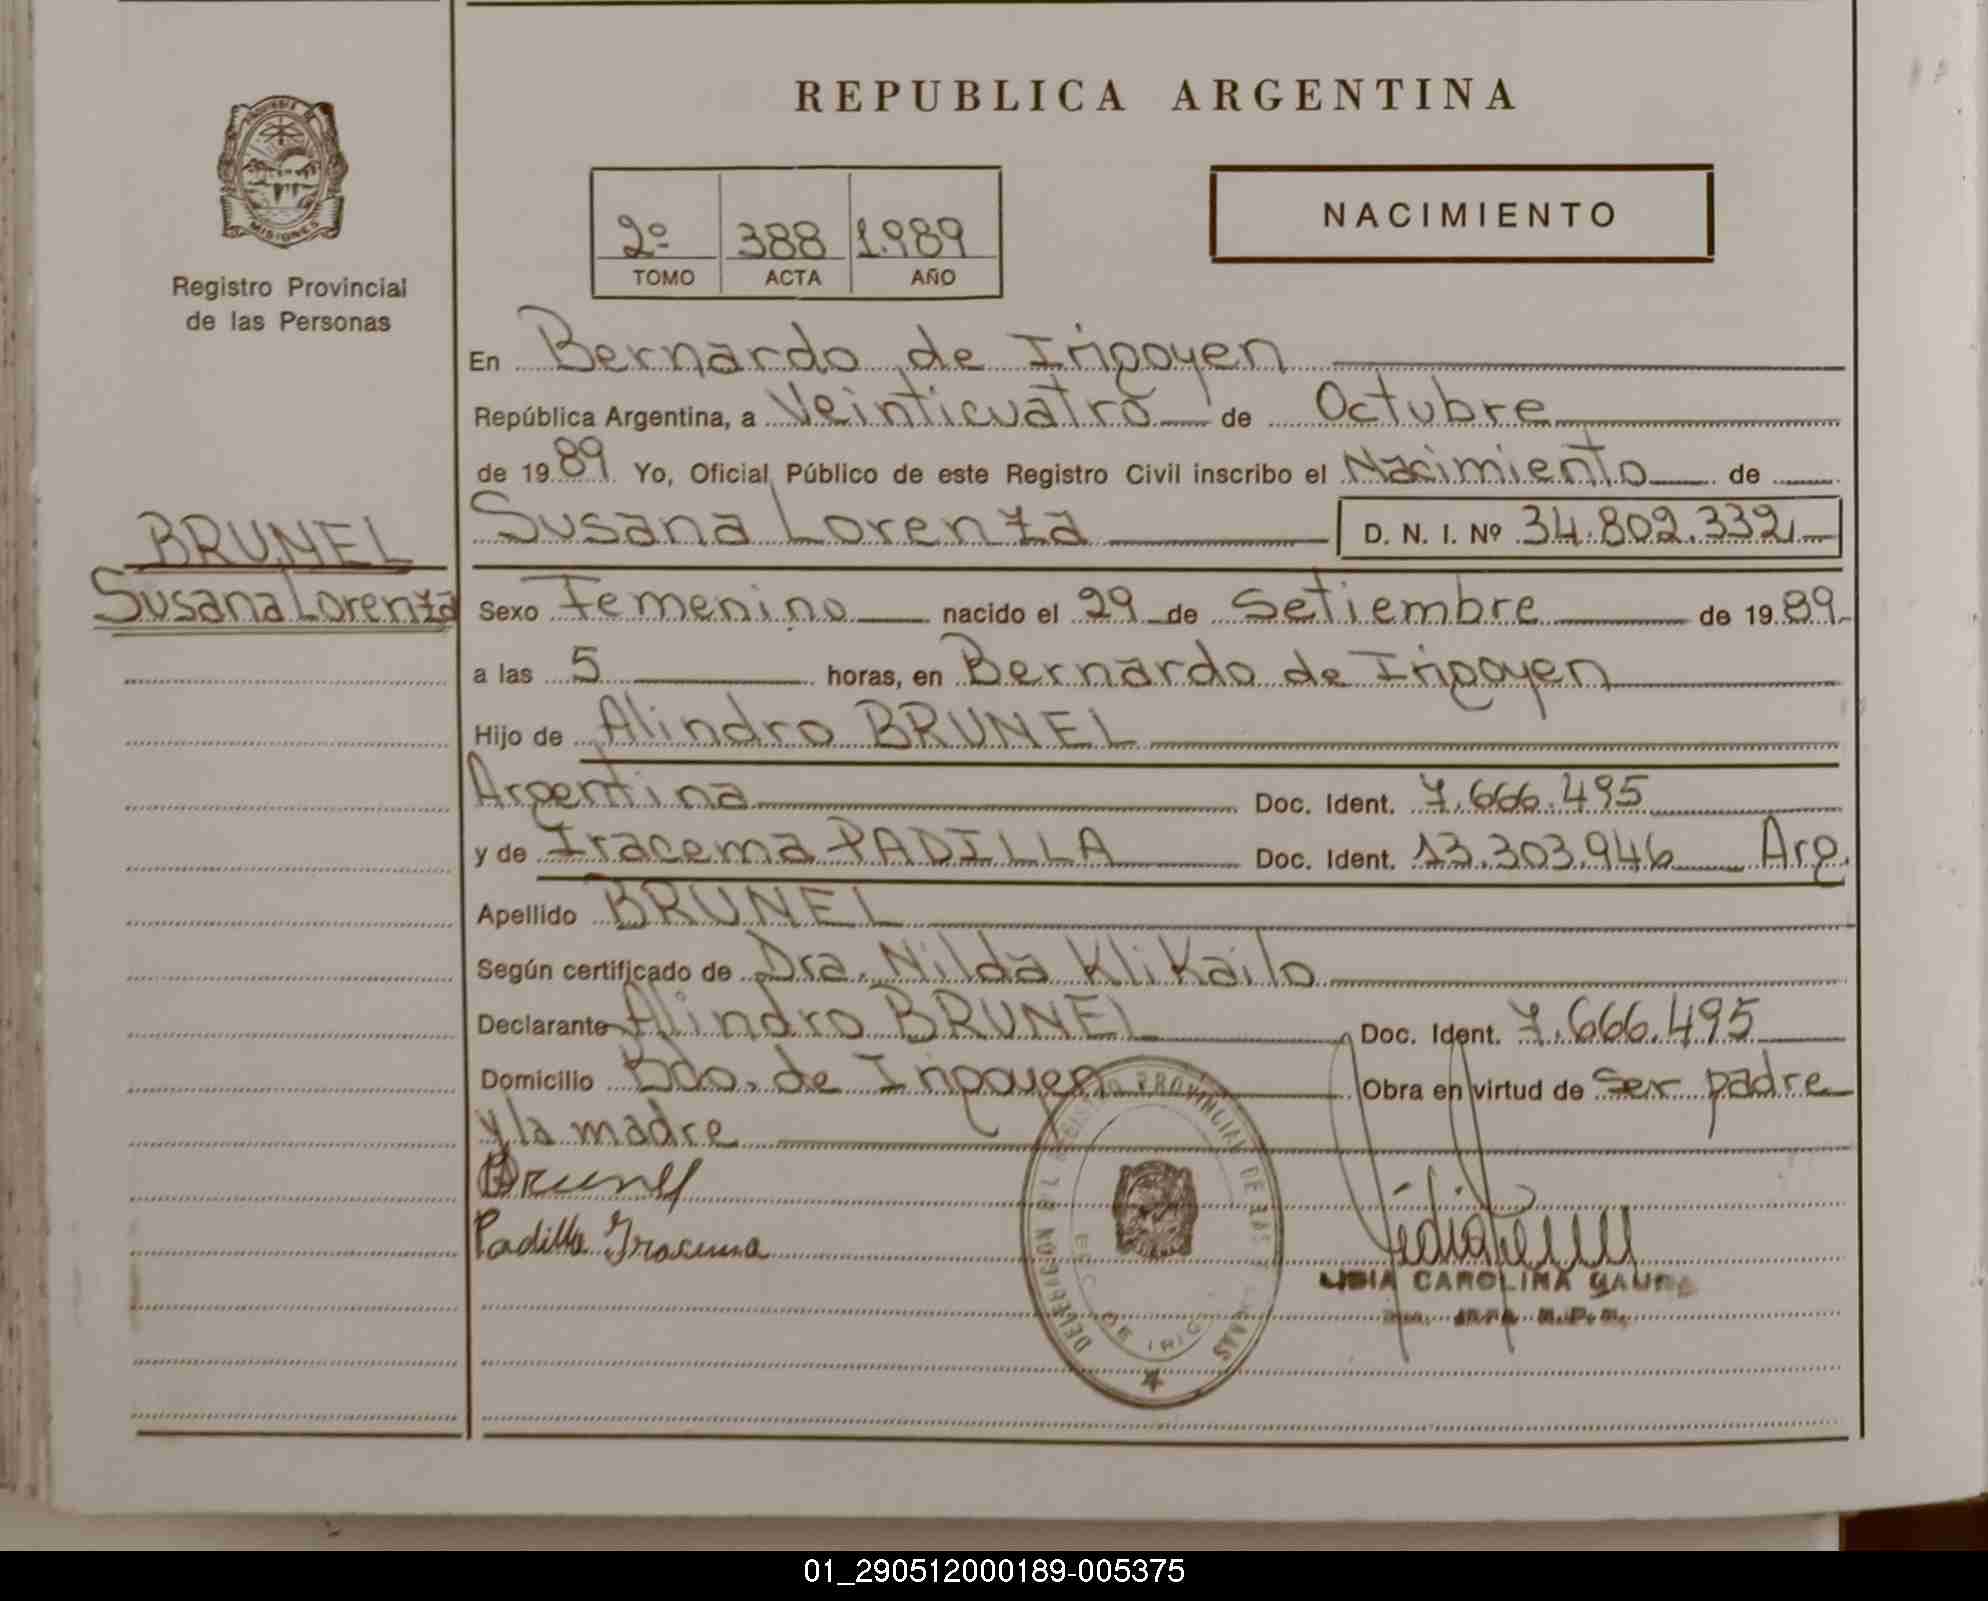 REPUBLICA ARGENTINA
MISIONES
Registro Provincial
de las Personas
NACIMIENTO
2º 388 1.989
TOMO ACTA AÑO
En Bernardo de Irigoyen
República Argentina, a Veinticuatro de Octubre
de 19 89 Yo, Oficial Público de este Registro Civil inscribo el Nacimiento de
Susana Lorenza D. N. I. Nº 34.802.332
BRUNEL
Susana Lorenza
Sexo Femenino nacido el 29 de Setiembre de 19 89
a las 5 horas, en Bernardo de Irigoyen
Hijo de Alindro BRUNEL
Argentina Doc. Ident. 7.666.495
y de Iracema PADILLA Doc. Ident. 13.303.946 Arg.
Apellido BRUNEL
Según certificado de Dra. Nilda Klikailo
Declarante Alindro BRUNEL Doc. Ident. 7.666.495
Domicilio Bdo. de Irigoyen Obra en virtud de ser padre
y la madre
Brunel
Padilla Iracema
DELEGACION DEL REGISTRO PROVINCIAL DE LAS PERSONAS
LIDIA CAROLINA
01_290512000189-005375